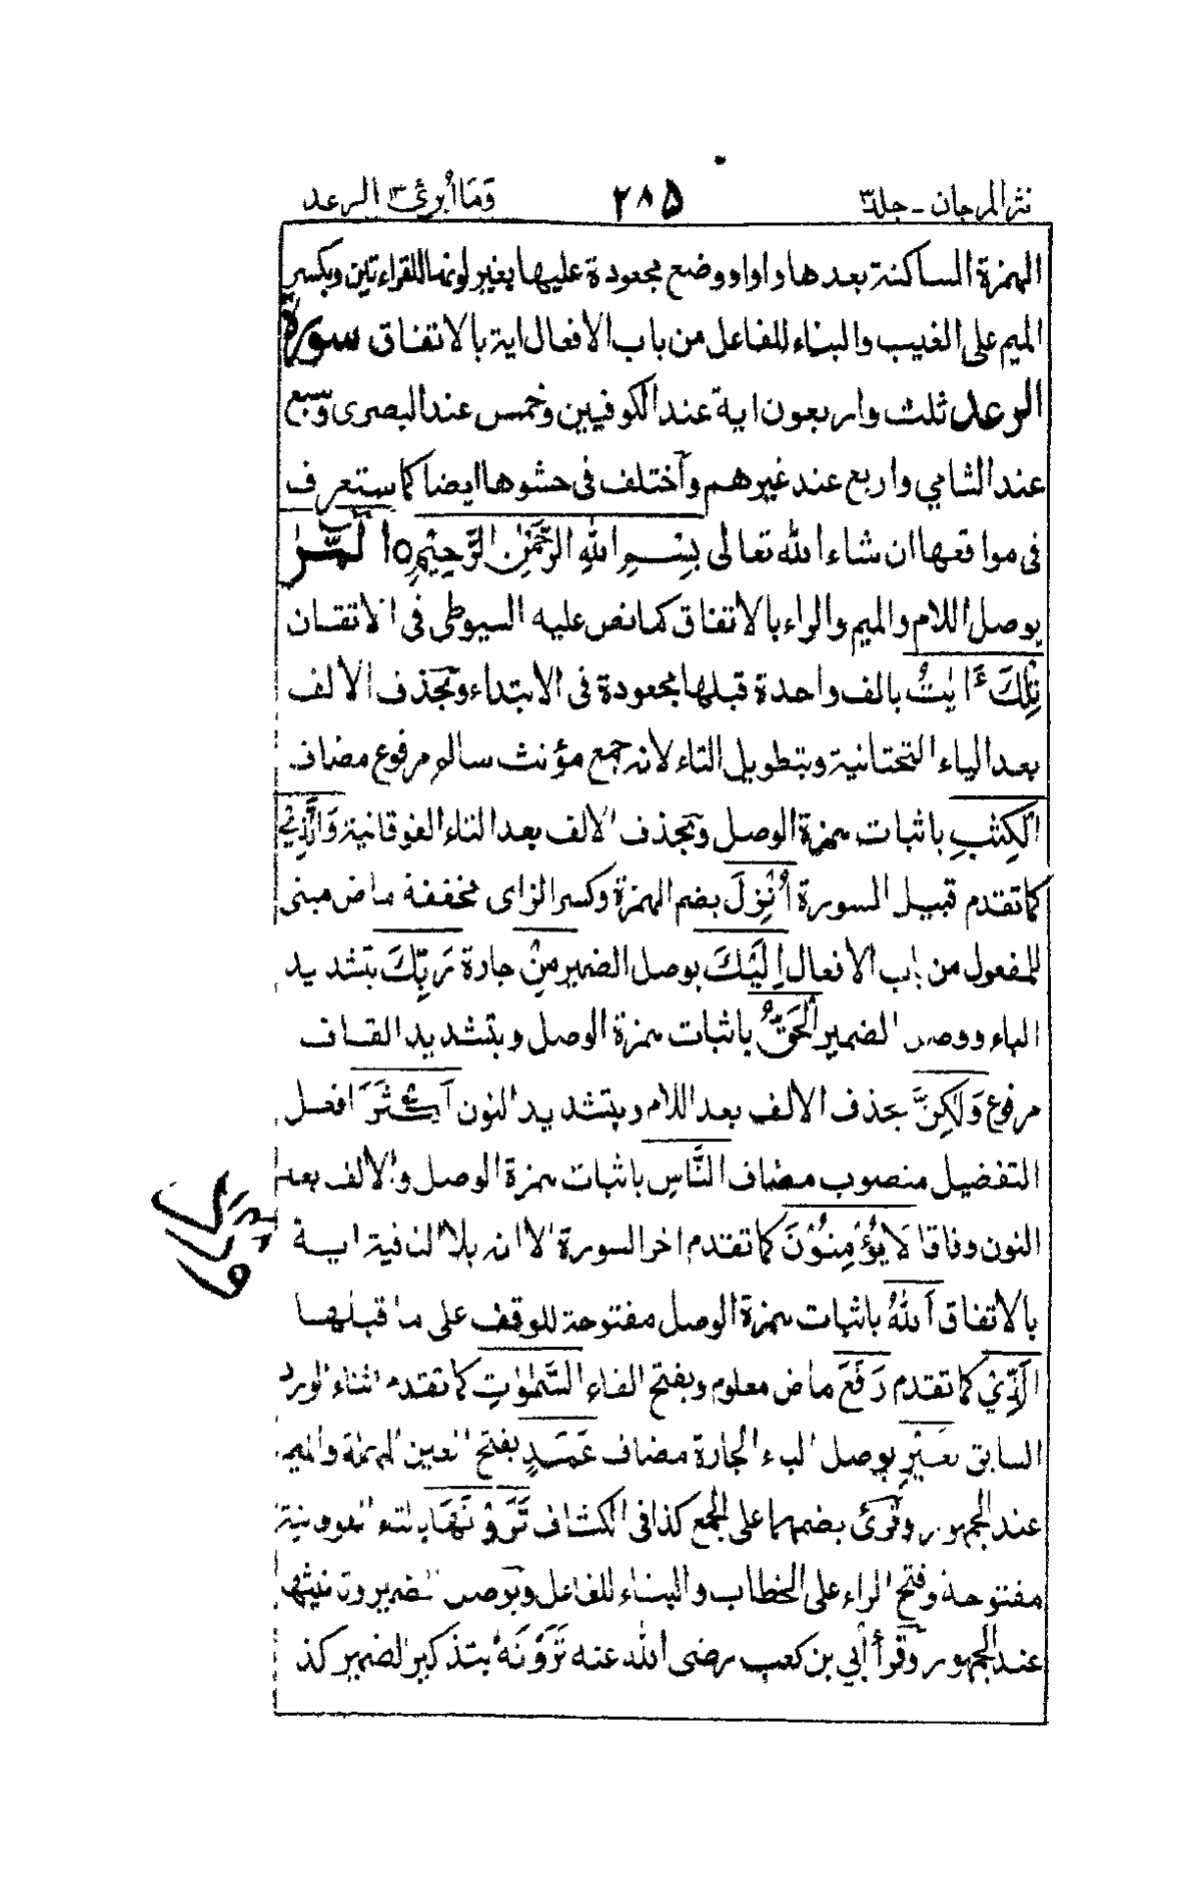 نثر المرجان - جلد ۳
۲۸۵
وَمَا أُبَرِّئُ ۱۳ الرعد
الهمزة الساكنة بعدها واوا ووضع مجعودة عليها بغير لونها للقراءتين وبكسر
الميم على الغيب والبناء للفاعل من باب الافعال اية بالاتفاق سورة
الرعد ثلث واربعون اية عند الكوفيين وخمس عند البصرى وسبع
عند الشامي واربع عند غيرهم وآختلف فى حشوها ايضا كما ستعرف
فى مواقعها ان شاء الله تعالى بِسْمِ اللهِ الرَّحْمٰنِ الرَّحِيْمِ ٥ الٓمّٓرٰ
بوصل اللام والميم والراء بالاتفاق كما نص عليه السيوطى فى الاتقان
تِلْكَ ءَايٰتُ بالف واحدة قبلها مجعودة فى الابتداء وبحذف الالف
بعد الياء التحتانية وبتطويل التاء لانه جمع مؤنث سالم مرفوع مضاف
الْكِتٰبِ باثبات همزة الوصل وبحذف الالف بعد التاء الفوقانية وَالَّذِيْ
كما تقدم قبيل السورة أُنْزِلَ بضم الهمزة وكسر الزاى مخففة ماض مبنى
للمفعول من باب الافعال اِلَيْكَ بوصل الضمير مِنْ جارة رَبِّكَ بتشديد
الباء ووصل الضمير الْحَقُّ باثبات همزة الوصل وبتشديد القاف
مرفوع وَلٰكِنَّ بحذف الالف بعد اللام وبتشديد النون اَكْثَرَ افعل
التفضيل منصوب مضاف النَّاسِ باثبات همزة الوصل والالف بعد
النون وفاقا لَا يُؤْمِنُوْنَ كما تقدم اخر السورة الا انه بلا النافية اية
بالاتفاق اَللهُ باثبات همزة الوصل مفتوحة للوقف على ما قبلها
الَّذِيْ كما تقدم رَفَعَ ماض معلوم وبفتح الفاء السَّمٰوٰتِ كما تقدم اثناء الورد
السابق بِغَيْرِ بوصل الباء الجارة مضاف عَمَدٍ بفتح العين المهملة والميم
عند الجمهور وقرئ بضمهما على الجمع كذا فى الكشاف تَرَوْنَهَا بالتاء الفوقانية
مفتوحة وفتح الراء على الخطاب والبناء للفاعل وبوصل الضمير وتانيثها
عند الجمهور وقرأ أبي بن كعب رضى الله عنه تَرَوْنَهُ بتذكير الضمير كذ